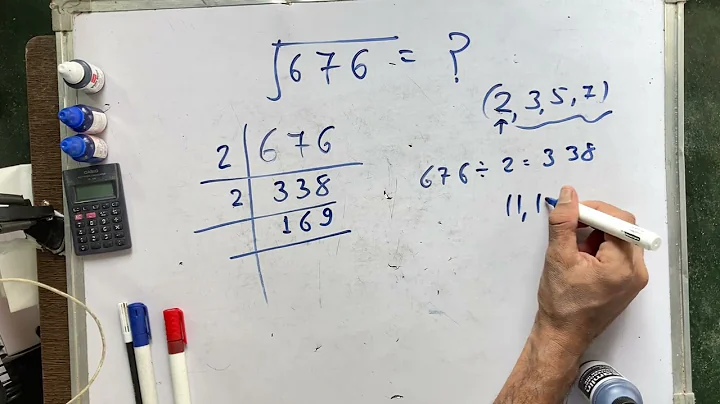 √676 = ?
(2, 3, 5, 7)
2 | 676
2 | 338
169
676 ÷ 2 = 338
11, 1